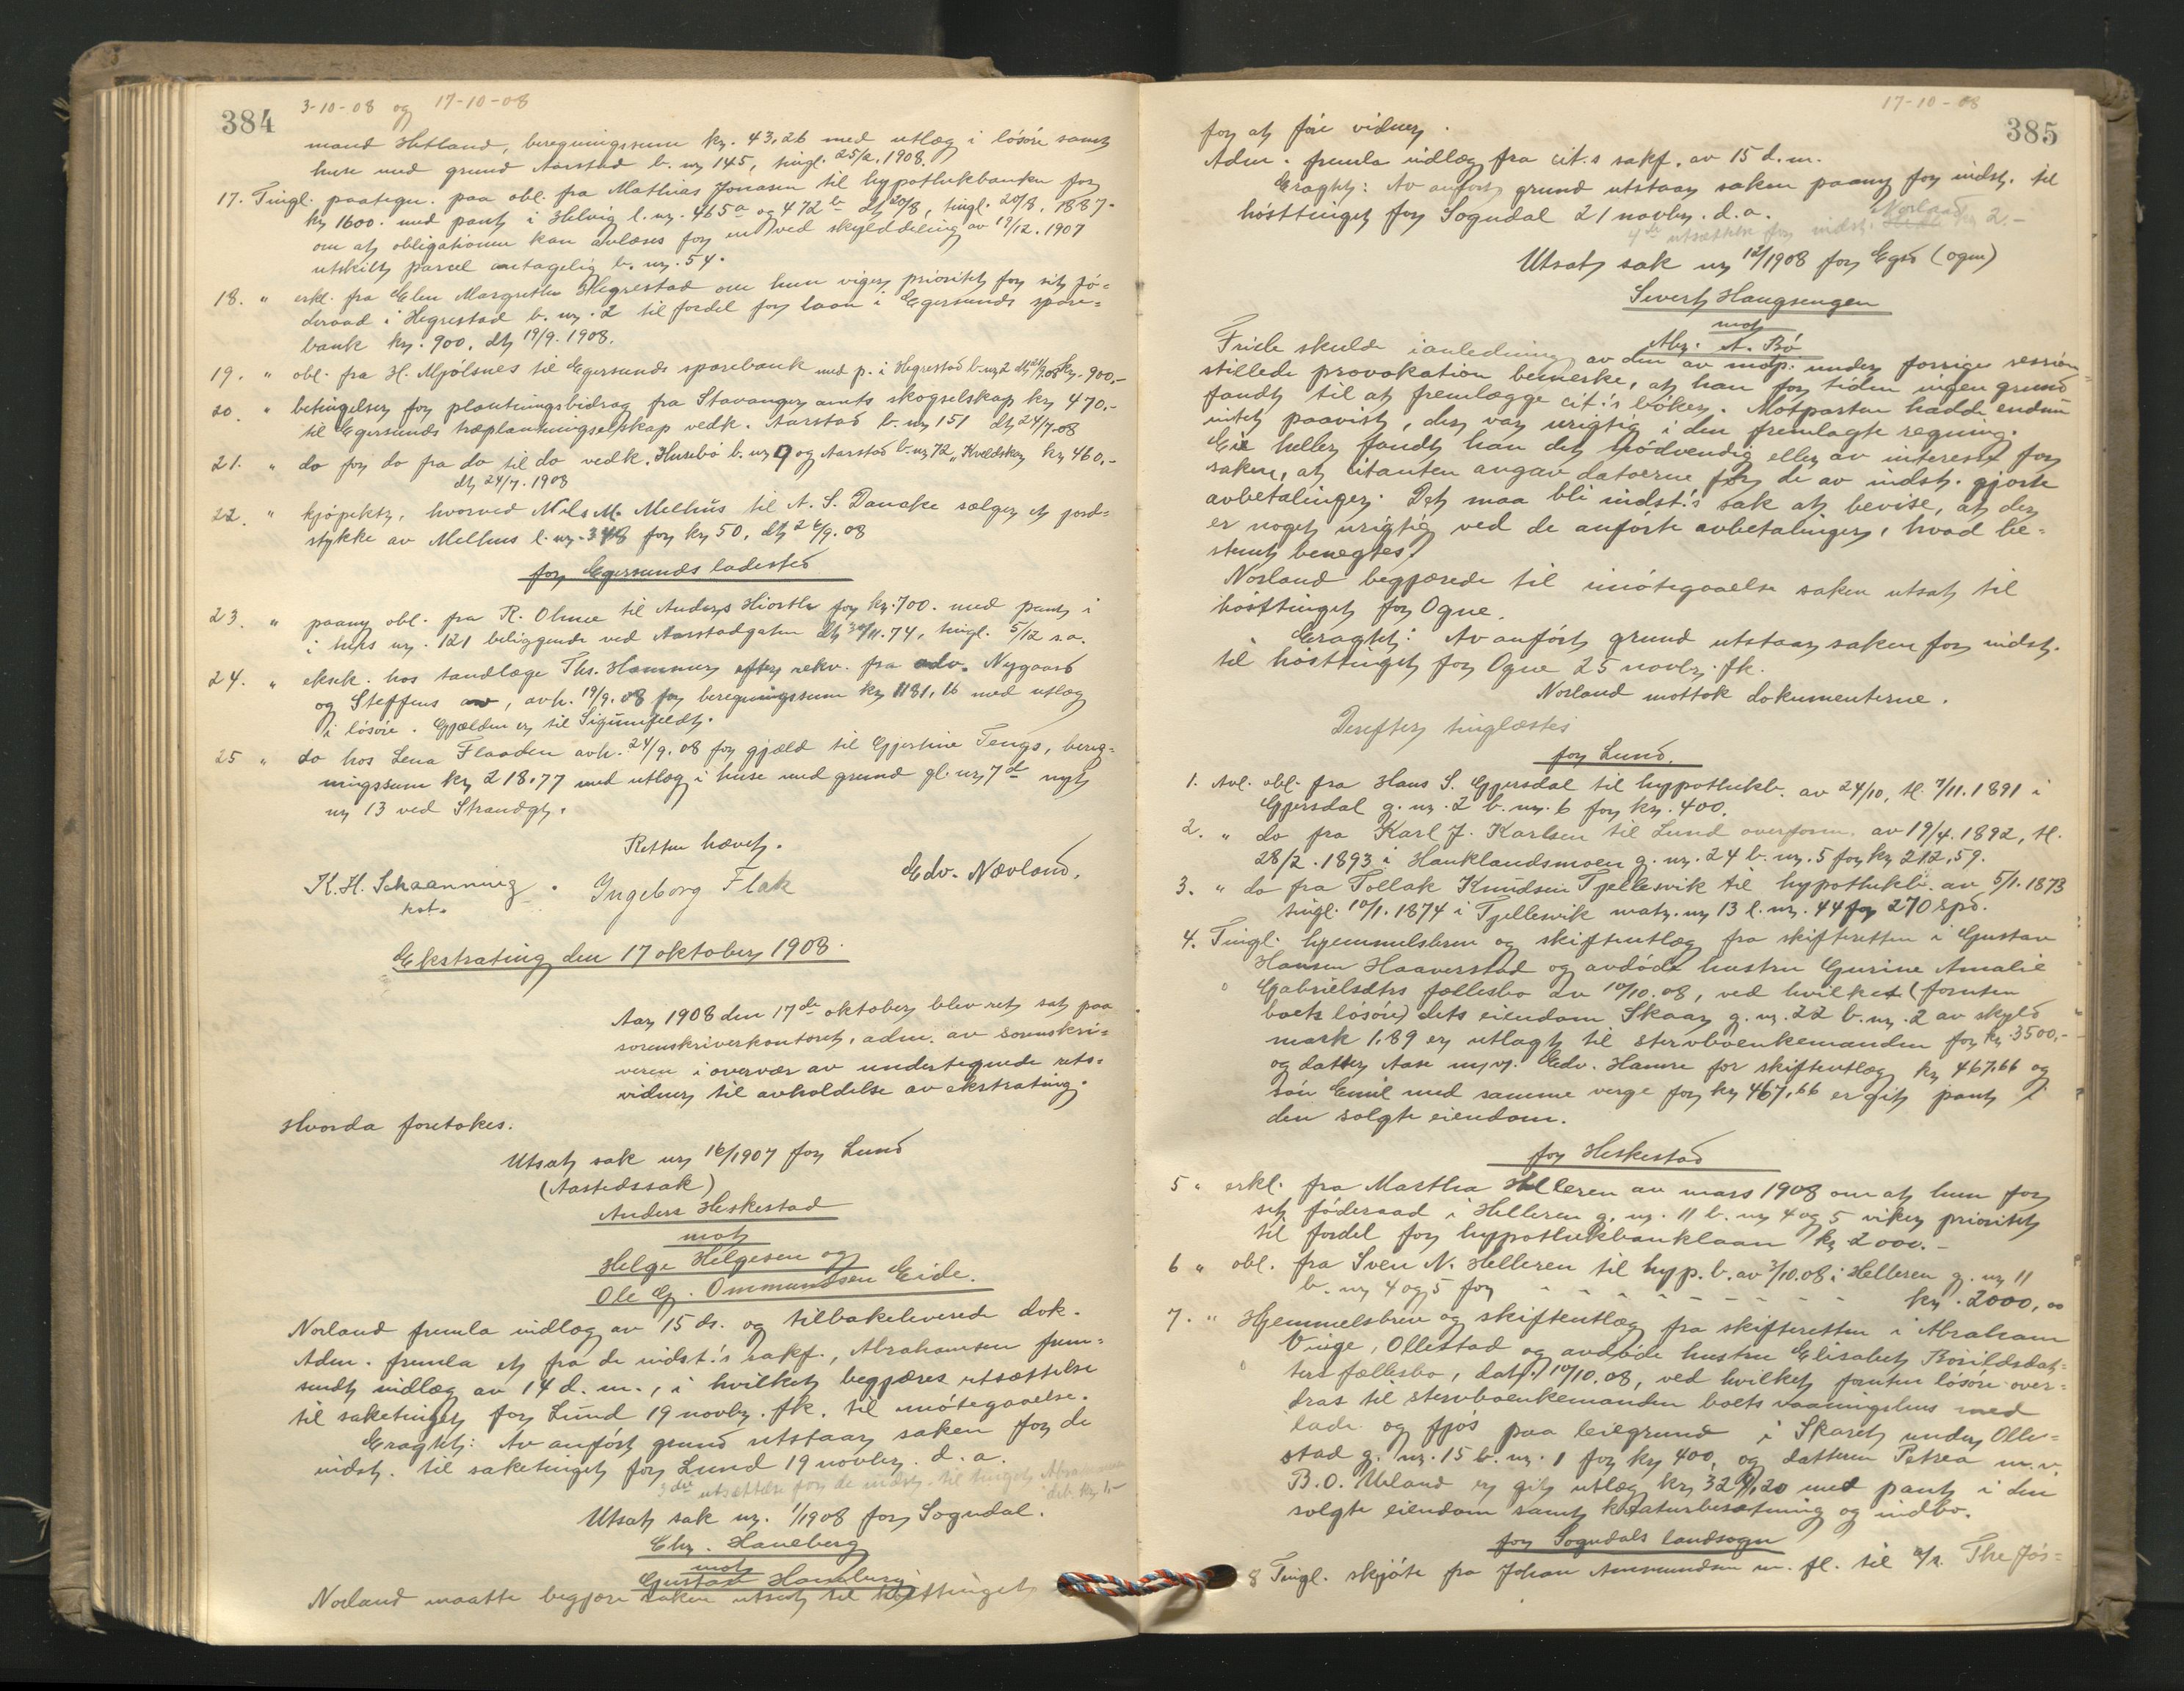 384
3-10-08 og 17-10-08
mand Hetland, beregningssum kr. 43,26 med utlæg i løsøre samt
huse med grund Aarstad b. nr 145, tingl. 25/2. 1908.
17. Tingl. paategn. paa obl. fra Mathias Jonasen til hypothekbanken for
kr 1600. med pant i Helvig l. nr. 465a og 472b dt 20/8, tingl. 20/8. 1887.
om at obligationen kan avlæses for en ved skylddeling av 19/12. 1907
utskilt parcel antagelig b. nr. 54.
18. " erkl. fra Elen Margrethe Hegrestad om hun viger prioritet for sit fø-
deraad i Hegrestad b. nr. 2 til fordel for laan i Egersunds spare-
bank kr. 900. dt 19/9. 1908.
19. " obl. fra H. Mjølsnes til Egersunds sparebank med p. i Hegrestad b. nr 2 dt 21/9.08 kr. 900,-
20. " betingelser for plantningsbidrag fra Stavanger amts skogselskap kr 470.-
til Egersunds træplantningselskap vedk. Aarstad b. nr 151 dt 24/7.08
21. " do for do fra do til do vedk. Husebø b. nr 9 og Aarstad b. nr 72 „Kveldskn kr 460,-
dt 24/7. 1908
22. " kjøpektr. hvorved Nils M. Melhus til A. S. Danake sælger et jord-
stykke av Melhus l. nr. 348 for kr 50, dt 26/9. 08
for Egersunds ladested
23. " paany obl. fra R. Olsnes til Anders Hiorthe for kr. 700. med pant i
i hus nr. 121 beliggende ved Aarstadgaten dt 30/11. 74, tingl. 5/12 s.a.
24. " eksek. hos tandlæge Ths. Hammer efter rekv. fra adv. Nygaard
og Steffens, avh. 19/9. 08 for beregningssum kr 1181,16 med utlæg
i løsøre. Gjælden er til Sigumfeldt.
25 " do hos Lena Flaaden avh. 24/9. 08 for gjæld til Gjertine Tengs, bereg-
ningssum kr 218.77 med utlæg i huse med grund gl. nr 7d nyt
nr 13 ved Strandgt.
Retten hævet.
K. H. Schaanning
kst.
Ingeborg Flak
Edv. Nævland.
Ekstrating den 17 oktober 1908.
Aar 1908 den 17de oktober blev ret sat paa
sorenskriverkontoret, adm. av sorenskri-
veren i overvær av undertegnede rets-
vidner til avholdelse av ekstrating.
Hvorda foretokes.
Utsat sak nr 16/1907 for Lund
(Aastedssak)
Anders Heskestad
mot
Helge Helgesen og
Ole G. Ommundsen Eide.
Norland fremla indlæg av 15 ds. og tilbakeleverede dok.
Adm. fremla et fra de indst.'s sakf., Abrahamsen frem-
sendt indlæg av 14 d. m., i hvilket begjæres utsættelse
til saketinget for Lund 19 novbr. fk. til imøtegaaelse.
Eragtet: Av anført grund utstaar saken for de
indst. til saketinget for Lund 19 novbr. d. a.
3die utsættelse for de indst. til tinget Abrahamsen
deb. kr 1.-
Utsat sak nr. 1/1908 for Sogndal.
Chr. Haneberg
mot
Gustav Hamburg
Norland maatte begjære saken utsat til høsttinget
17-10-08
385
for at føre vidner.
Adm. fremla indlæg fra cit.s sakf. av 15 d. m.
Eragtet: Av anført grund utstaar saken paany for indst. til
høsttinget for Sogndal 21 novbr. d. a.
4de utsættelse for indst. Norland kr 2.-
Utsat sak nr 12/1908 for Egsd (ogn)
Sivert Haugsengen
mot
Abr. A. Bø
Friele skulde ianledning av den av motp. under forrige session
stillede provokation bemerke, at han for tiden ingen grund
fandt til at fremlægge cit.'s bøker. Motparten hadde endnu
intet paavist, der var urigtig i den fremlagte regning.
Ei heller fandt han det nødvendig eller av interesse for
saken, at citanten angav datoerne for de av indst. gjorte
avbetalinger. Det maa bli indst.'s sak at bevise, at der
er noget urigtig ved de anførte avbetalinger, hvad be-
stemt benegtes.
Norland begjærede til imøtegaaelse saken utsat til
høsttinget for Ogne.
Eragtet: Av anført grund utstaar saken for indst.
til høsttinget for Ogne 25 novbr. fk.
Norland mottok dokumenterne.
Derefter tinglæstes
for Lund.
1. Avl. obl. fra Hans S. Gjersdal til hypothekb. av 24/10, tl. 7/11. 1891 i
Gjersdal g. nr. 2 b. nr. 6 for kr. 400.
2. " do fra Karl J. Karlsen til Lund overform. av 19/4. 1892, tl.
28/2. 1893 i Hauklandsmoen g. nr. 24 b. nr. 5 for kr 212,59.
3. " do fra Tollak Knudsen Tjellesvik til hypothekb. av 5/1. 1873
tingl. 10/1. 1874 i Tjellesvik matr. nr 13 l. nr. 44 for 270 spd.
4. Tingl. hjemmelsbrev og skifteutlæg fra skifteretten i Gustav
Hansen Haaverstad og avdøde hustru Gurine Amalie
Gabrielsdtrs fællesbo av 10/10. 08, ved hvilket (foruten
boets løsøre) dets eiendom Skaar g. nr. 22 b. nr. 2 av skyld
mark 1.89 er utlagt til stervboenkemanden for kr. 3500,-
og datter Aase m/v. Edv. Hamre for skifteutlæg kr 467.66 og
søn Emil med samme verge for kr 467,66 er git pant i
den solgte eiendom.
for Heskestad
5 " erkl. fra Martha Helleren av mars 1908 om at hun for
sit føderaad i Helleren g. nr. 11 b. nr 4 og 5 viker prioritet
til fordel for hypothekbanklaan kr 2000.-
6 " obl. fra Sven N. Helleren til hyp. b. av 3/10.08 i Helleren g. nr 11
b. nr 4 og 5 for - - - - - - - - kr. 2000,00
7. " Hjemmelsbrev og skifteutlæg fra skifteretten i Abraham
Vinge, Ollestad og avdøde hustru Elisabet Børildsdat-
ters fællesbo, dat. 10/10. 08, ved hvilket foruten løsøre over-
dras til stervboenkemanden boets vaaningshus med
lade og fjøs paa leiegrund i Skaret under Olle-
stad g. nr. 15 b. nr. 1 for kr 400, og datteren Petrea m. v.
B. O. Ueland er git utlæg kr 329,20 med pant i den
solgte eiendom samt kreaturbesætning og indbo.
for Sogndals landsogn
8 Tingl. skjøte fra Johan Ammundsen m. fl. til a/s. The Jøs-